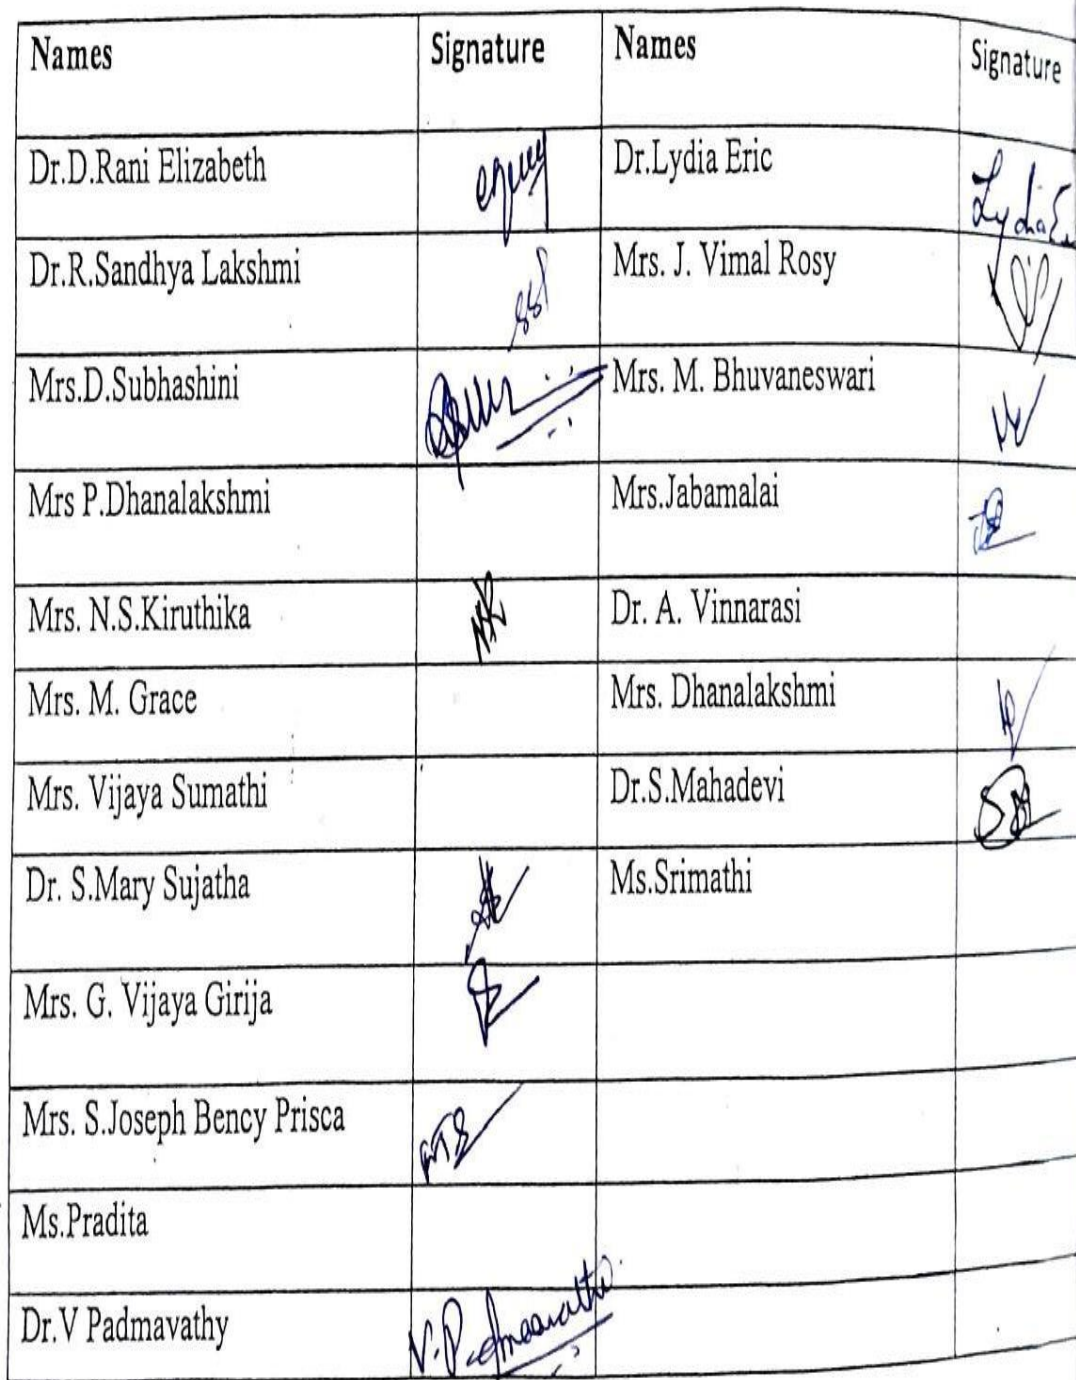 Names Signature Names Signature
Dr.D.Rani Elizabeth Dr.Lydia Eric Lydia E
Dr.R.Sandhya Lakshmi Mrs. J. Vimal Rosy
Mrs.D.Subhashini Mrs. M. Bhuvaneswari
Mrs P.Dhanalakshmi Mrs.Jabamalai
Mrs. N.S.Kiruthika Dr. A. Vinnarasi
Mrs. M. Grace Mrs. Dhanalakshmi
Mrs. Vijaya Sumathi Dr.S.Mahadevi
Dr. S.Mary Sujatha Ms.Srimathi
Mrs. G. Vijaya Girija
Mrs. S.Joseph Bency Prisca
Ms.Pradita
Dr.V Padmavathy V.Padmaavathi